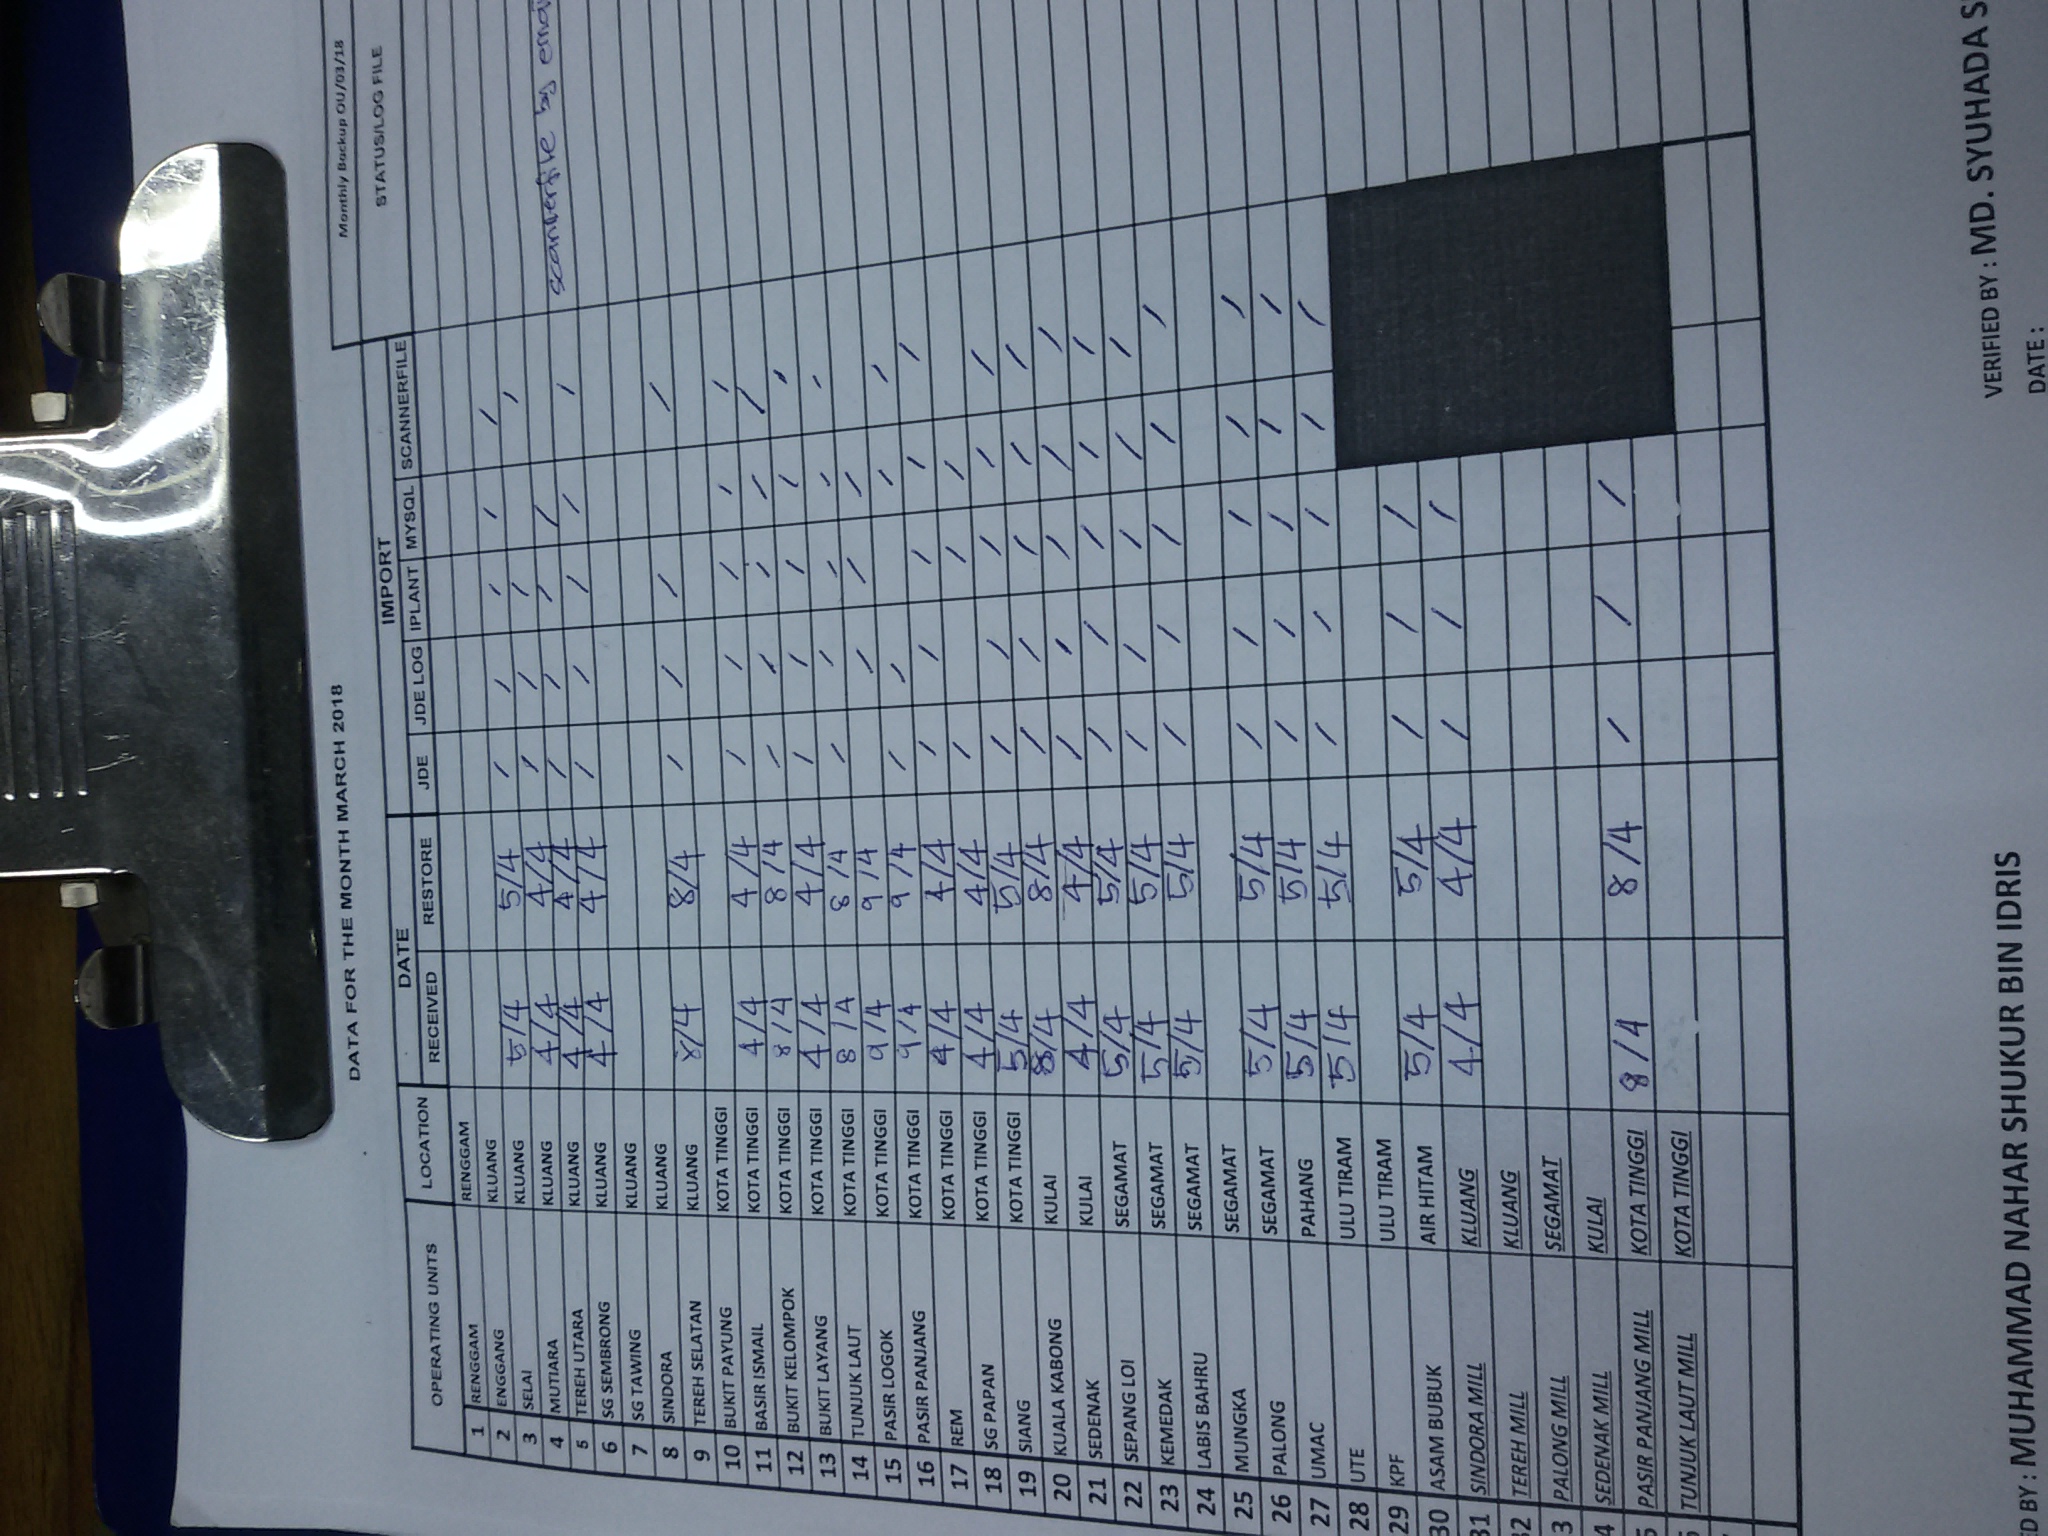 DATA FOR THE MONTH MARCH 2018
Monthly Backup OU/03/18
OPERATING UNITS LOCATION DATE IMPORT STATUS/LOG FILE
RECEIVED RESTORE JDE JDE LOG IPLANT MYSQL SCANNERFILE
1 RENGGAM RENGGAM
2 ENGGANG KLUANG
3 SELAI KLUANG 5/4 5/4 / / / / /
4 MUTIARA KLUANG 4/4 4/4 / / / /
5 TEREH UTARA KLUANG 4/4 4/4 / / / / scannerfile by
6 SG SEMBRONG KLUANG 4/4 4/4 / / / / /
7 SG TAWING KLUANG
8 SINDORA KLUANG
9 TEREH SELATAN KLUANG 8/4 8/4 / / / /
10 BUKIT PAYUNG KOTA TINGGI
11 BASIR ISMAIL KOTA TINGGI 4/4 4/4 / / / / /
12 BUKIT KELOMPOK KOTA TINGGI 8/4 8/4 / / / / /
13 BUKIT LAYANG KOTA TINGGI 4/4 4/4 / / / / /
14 TUNJUK LAUT KOTA TINGGI 8/4 8/4 / / / / /
15 PASIR LOGOK KOTA TINGGI 9/4 9/4 / / /
16 PASIR PANJANG KOTA TINGGI 9/4 9/4 / / / /
17 REM KOTA TINGGI 4/4 4/4 / / / / /
18 SG PAPAN KOTA TINGGI 4/4 4/4 / / /
19 SIANG KOTA TINGGI 5/4 5/4 / / / / /
20 KUALA KABONG KULAI 8/4 8/4 / / / / /
21 SEDENAK KULAI 4/4 4/4 / / / / /
22 SEPANG LOI SEGAMAT 5/4 5/4 / / / / /
23 KEMEDAK SEGAMAT 5/4 5/4 / / / / /
24 LABIS BAHRU SEGAMAT 5/4 5/4 / / / / /
25 MUNGKA SEGAMAT
26 PALONG SEGAMAT 5/4 5/4 / / / / /
27 UMAC PAHANG 5/4 5/4 / / / / /
28 UTE ULU TIRAM 5/4 5/4 / / / / /
29 KPF ULU TIRAM
30 ASAM BUBUK AIR HITAM 5/4 5/4 / / /
31 SINDORA MILL KLUANG 4/4 4/4 / / /
2 TEREH MILL KLUANG
3 PALONG MILL SEGAMAT
4 SEDENAK MILL KULAI
5 PASIR PANJANG MILL KOTA TINGGI 8/4 8/4 / / /
TUNJUK LAUT MILL KOTA TINGGI
ED BY : MUHAMMAD NAHAR SHUKUR BIN IDRIS
VERIFIED BY : MD. SYUHADA S
DATE :